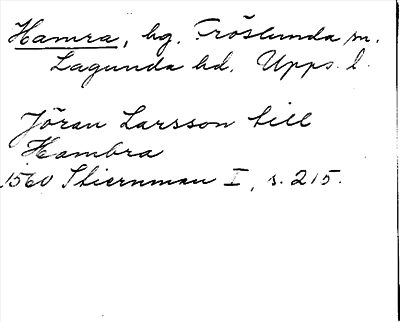 Hamra, hg. Fröslunda sn.
Lagunda hd. Upps. l.
Jöran Larsson till
Hambra
1560 Stiernman I, s. 215.